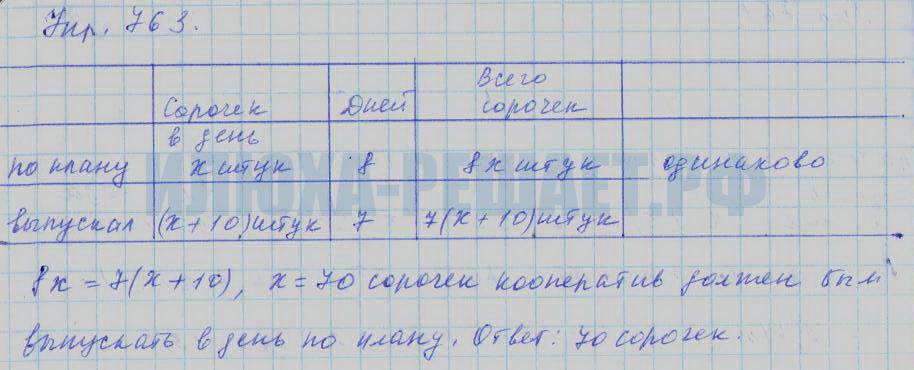 Упр. 763.
Сорочек в день Дней Всего сорочек
по плану x штук 8 8x штук одинаково
выпускал (x+10) штук 7 7(x+10) штук
8x = 7(x+10), x=70 сорочек кооператив должен был
выпускать в день по плану. Ответ: 70 сорочек.
ИЛЮХА-РЕШАЕТ.РФ